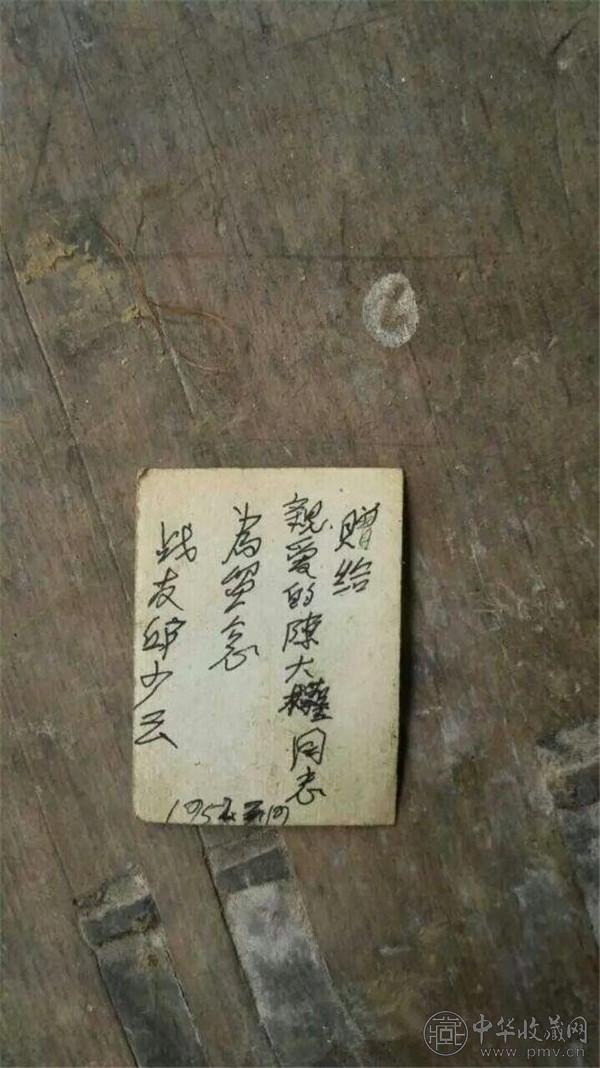 赠给
親爱的陳大權同志
為留念
战友邱少云
中华收藏网
www.pmv.cn